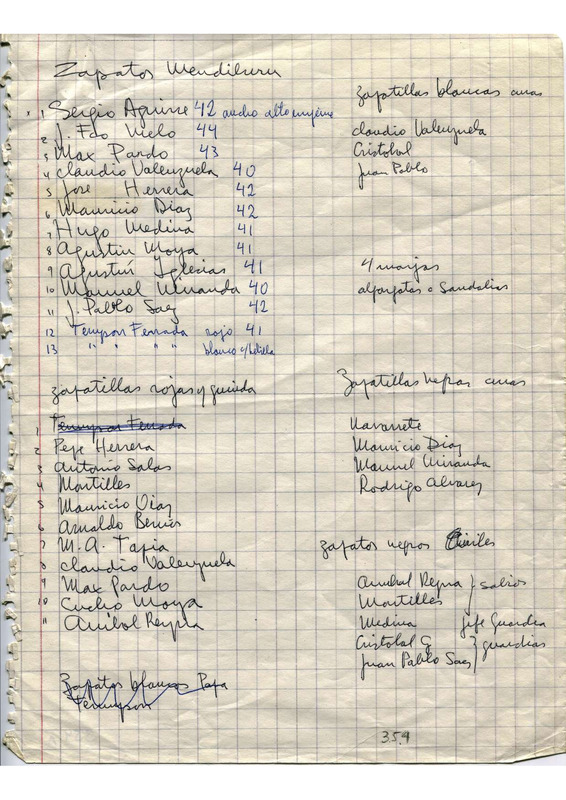 Zapatos Mendiluru
x 1 Sergio Aguirre 42 ancho alto empeine
2 J. Fco Melo 44
3 Max Pardo 43
4 Claudio Valenzuela 40
5 José Herrera 42
6 Mauricio Diaz 42
7 Hugo Medina 41
8 Agustin Moya 41
9 Agustín Iglesias 41
10 Manuel Miranda 40
11 J. Pablo Saez 42
12 Tennyson Ferrada rojo 41
13 " " " " blanco c/hebilla
Zapatillas blancas curas
Claudio Valenzuela
Cristobal
Juan Pablo
4 monjas
alpargatas o Sandalias
Zapatillas rojas y guinda
1 Tennyson Ferrada
2 Pepe Herrera
3 Antonio Salas
4 Montilles
5 Mauricio Diaz
6 Arnaldo Berrios
7 M. A. Tapia
8 Claudio Valenzuela
9 Max Pardo
10 Cucho Moya
11 Anibal Reyna
Zapatillas negras curas
Navarrete
Mauricio Diaz
Manuel Miranda
Rodrigo Alvarez
Zapatos negros Civiles
Anibal Reyna } sabios
Montilles
Medina jefe Guardia
Cristobal G } guardias
Juan Pablo Saez
Zapatos blancos Papa
Tennyson
359